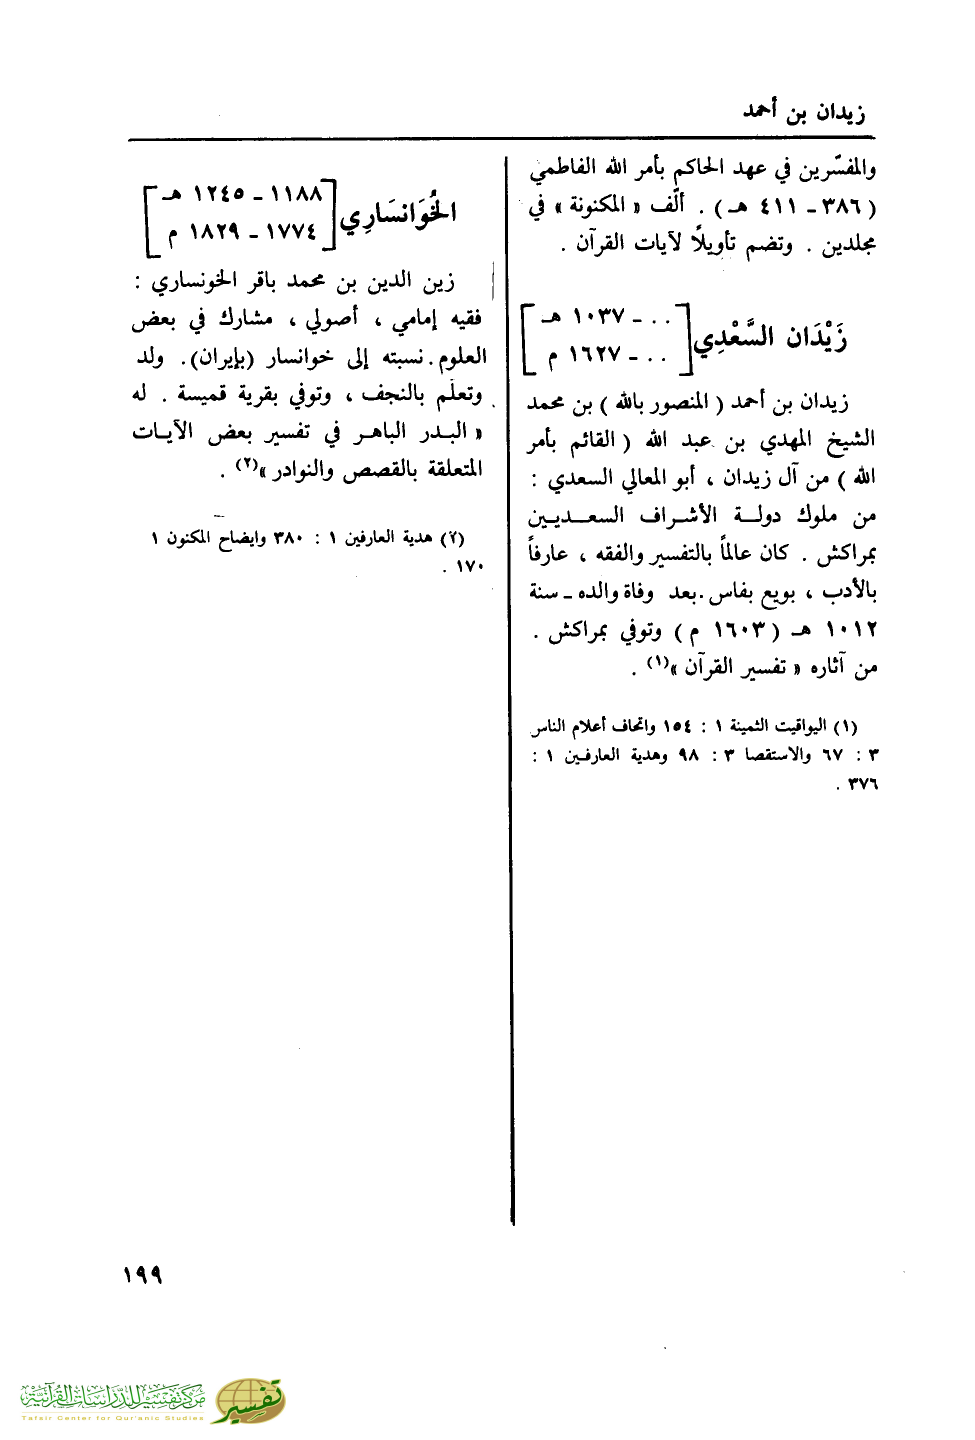 زيدان بن أحمد
والمفسّرين في عهد الحاكم بأمر الله الفاطمي
( ٣٨٦ - ٤١١ هـ ) . ألّف « المكنونة » في
مجلدين . وتضم تأويلاً لآيات القرآن .
زَيْدَان السَّعْدِي [ . . . - ١٠٣٧ هـ
. . . - ١٦٢٧ م ]
زيدان بن أحمد ( المنصور بالله ) بن محمد
الشيخ المهدي بن عبد الله ( القائم بأمر
الله ) من آل زيدان ، أبو المعالي السعدي :
من ملوك دولة الأشراف السعديين
بمراكش . كان عالماً بالتفسير والفقه ، عارفاً
بالأدب ، بويع بفاس . بعد وفاة والده - سنة
١٠١٢ هـ ( ١٦٠٣ م ) وتوفي بمراكش .
من آثاره « تفسير القرآن »(١) .
(١) اليواقيت الثمينة ١ : ١٥٤ واتحاف أعلام الناس
٣ : ٦٧ والاستقصا ٣ : ٩٨ وهدية العارفين ١ :
٣٧٦ .
الخُوَانسَارِي [ ١١٨٨ - ١٢٤٥ هـ
١٧٧٤ - ١٨٢٩ م ]
زين الدين بن محمد باقر الخونساري :
فقيه إمامي ، أصولي ، مشارك في بعض
العلوم . نسبته إلى خوانسار (بإيران). ولد
وتعلّم بالنجف ، وتوفي بقرية قميسة . له
« البدر الباهر في تفسير بعض الآيات
المتعلقة بالقصص والنوادر »(٢) .
(٢) هدية العارفين ١ : ٣٨٠ وايضاح المكنون ١
١٧٠ .
١٩٩
مركز تفسير للدراسات القرآنية
Tafsir Center for Qur'anic Studies
تفسير